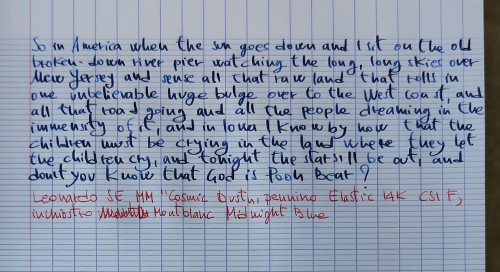 So in America when the sun goes down and I sit on the old
broken-down river pier watching the long, long skies over
New Jersey and sense all that raw land that rolls in
one unbelievable huge bulge over to the West coast, and
all that road going and all the people dreaming in the
immensity of it, and in Iowa I know by now that the
children must be crying in the land where they let
the children cry, and tonight the stars'll be out, and
don't you know that God is Pooh Bear?
Leonardo SE MM "Cosmic Dust", pennino Elastic 14K CSI F,
inchiostro Montblanc Midnight Blue